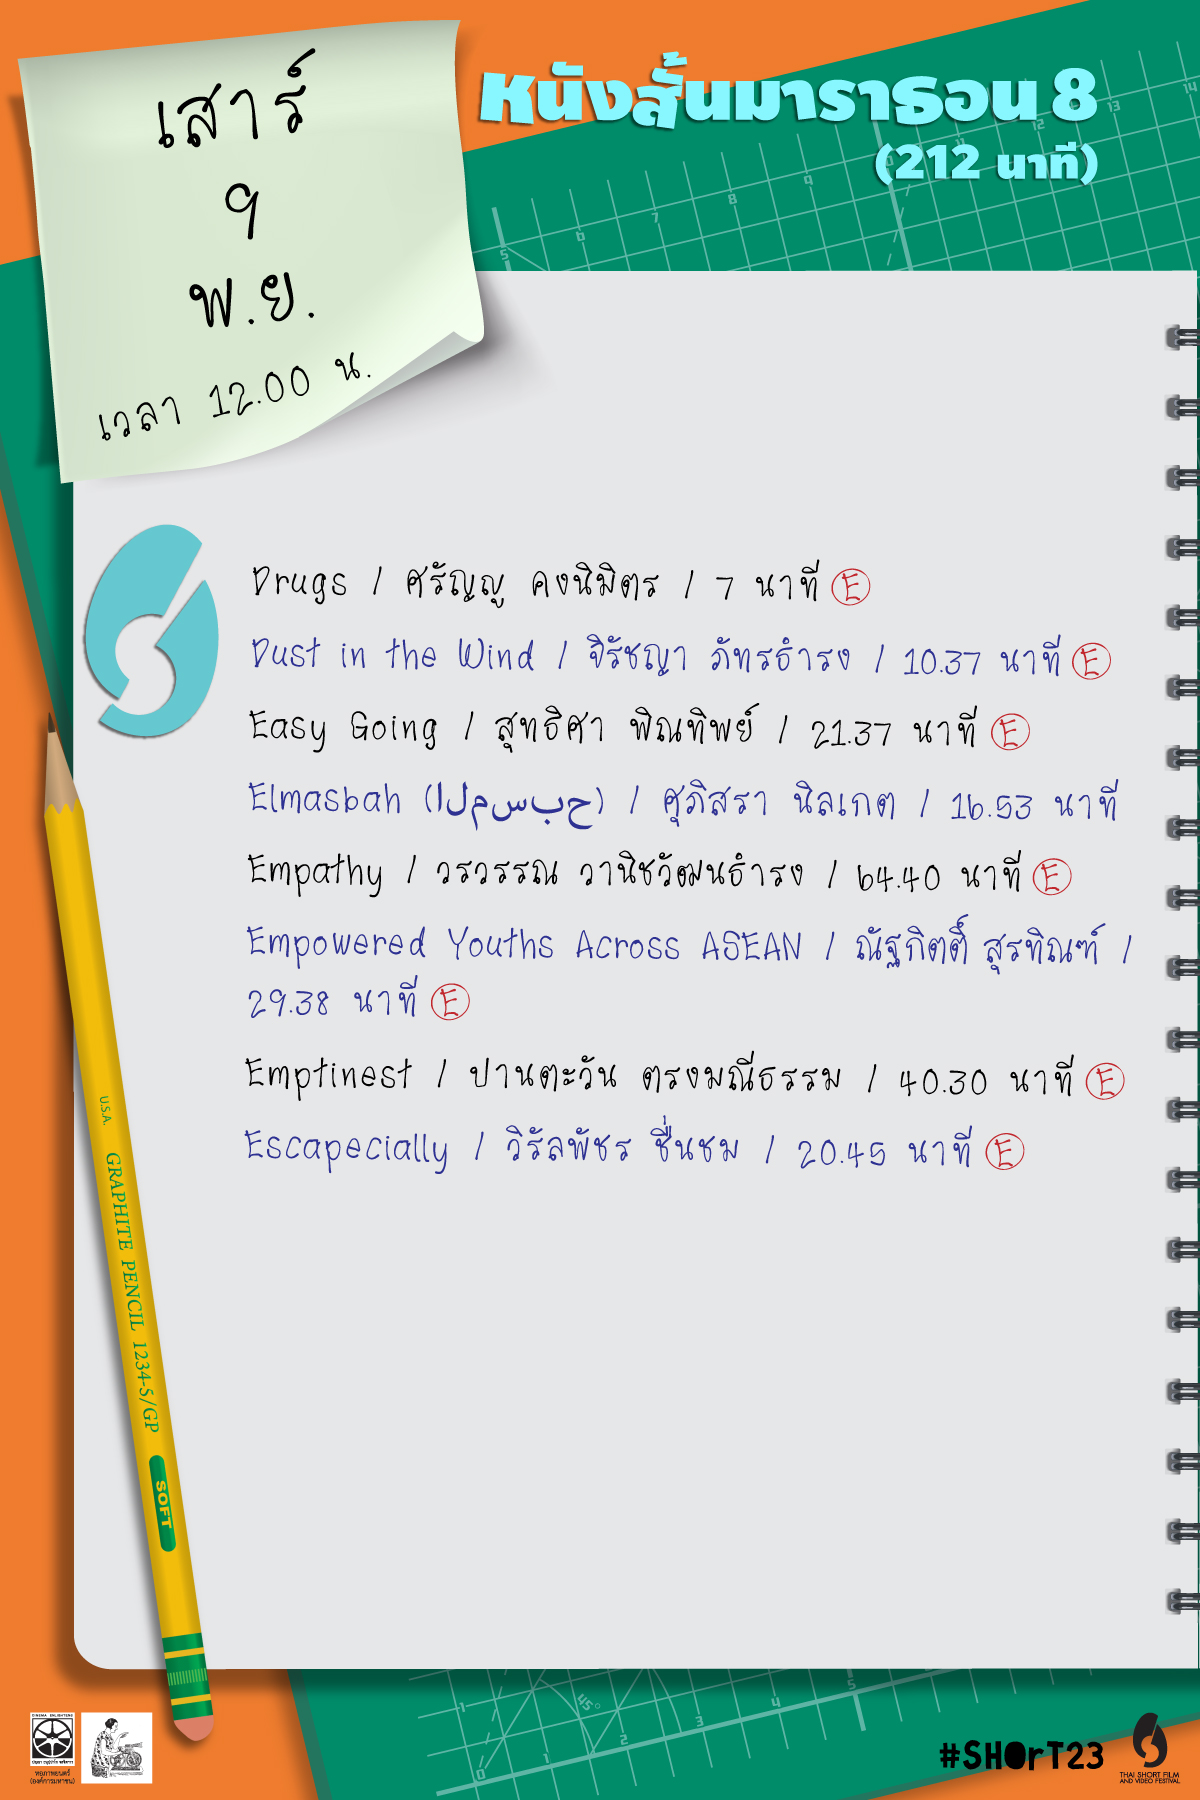 เสาร์
9
พ.ย.
เวลา 12.00 น.
หนังสั้นมาราธอน 8
(212 นาที)
Drugs / ศรัญญู คงนิมิตร / 7 นาที E
Dust in the Wind / จิรัชญา ภัทรธำรง / 10.37 นาที E
Easy Going / สุทธิศา พิณทิพย์ / 21.37 นาที E
Elmasbah (ا ل م س ب ح) / ศุภิสรา นิลเกต / 16.53 นาที
Empathy / วรวรรณ วานิชวัฒนธำรง / 64.40 นาที E
Empowered Youths Across ASEAN / ณัฐกิตติ์ สุรทิณฑ์ /
29.38 นาที E
Emptinest / ปานตะวัน ตรงมณีธรรม / 40.30 นาที E
Escapecially / วิรัลพัชร ชื่นชม / 20.45 นาที E
U.S.A. GRAPHITE PENCIL 1234-5/GP
SOFT
5 6 7 8 9 12 13 14
0 1 2 3 4 5
1
45°
CINEMA ENLIGHTENS
หอภาพยนตร์
(องค์การมหาชน)
#SHOrT23
THAI SHORT FILM
AND VIDEO FESTIVAL